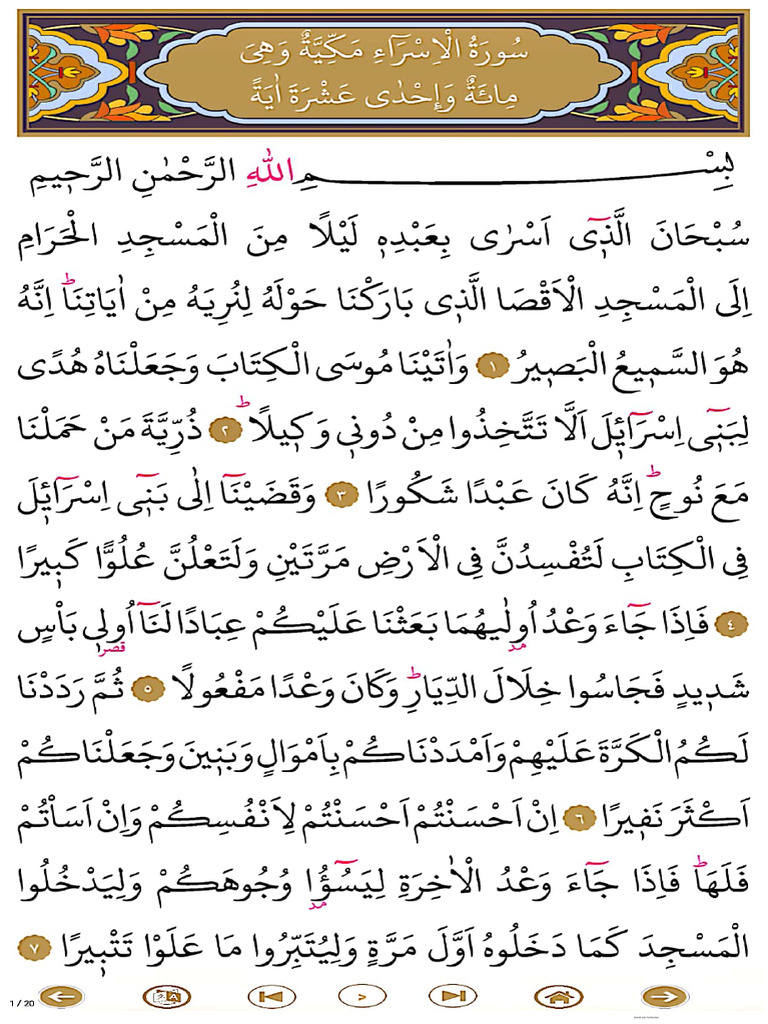 سُورَةُ الْاِسْرَٓاءِ مَكِّيَّةٌ وَهِيَ
مِائَةٌ وَاِحْدٰى عَشْرَةَ اٰيَةً
بِسْمِ اللّٰهِ الرَّحْمٰنِ الرَّح۪يمِ
سُبْحَانَ الَّذ۪ٓي اَسْرٰى بِعَبْدِه۪ لَيْلًا مِنَ الْمَسْجِدِ الْحَرَامِ
اِلَى الْمَسْجِدِ الْاَقْصَا الَّذ۪ي بَارَكْنَا حَوْلَهُ لِنُرِيَهُ مِنْ اٰيَاتِنَاۜ اِنَّهُ
هُوَ السَّم۪يعُ الْبَص۪يرُ ١ وَاٰتَيْنَا مُوسَى الْكِتَابَ وَجَعَلْنَاهُ هُدًى
لِبَن۪ٓي اِسْرَٓائ۪لَ اَلَّا تَتَّخِذُوا مِنْ دُون۪ي وَك۪يلًاۜ ٢ ذُرِّيَّةَ مَنْ حَمَلْنَا
مَعَ نُوحٍۜ اِنَّهُ كَانَ عَبْدًا شَكُورًا ٣ وَقَضَيْنَٓا اِلٰى بَن۪ٓي اِسْرَٓائ۪لَ
فِي الْكِتَابِ لَتُفْسِدُنَّ فِي الْاَرْضِ مَرَّتَيْنِ وَلَتَعْلُنَّ عُلُوًّا كَب۪يرًا
٤ فَاِذَا جَٓاءَ وَعْدُ اُو۫لٰيهُمَا بَعَثْنَا عَلَيْكُمْ عِبَادًا لَنَٓا اُو۬ل۪ي بَأْسٍ
مد قصر
شَد۪يدٍ فَجَاسُوا خِلَالَ الدِّيَارِۜ وَكَانَ وَعْدًا مَفْعُولًا ٥ ثُمَّ رَدَدْنَا
لَكُمُ الْكَرَّةَ عَلَيْهِمْ وَاَمْدَدْنَاكُمْ بِاَمْوَالٍ وَبَن۪ينَ وَجَعَلْنَاكُمْ
اَكْثَرَ نَف۪يرًا ٦ اِنْ اَحْسَنْتُمْ اَحْسَنْتُمْ لِاَنْفُسِكُمْ وَاِنْ اَسَأْتُمْ
فَلَهَاۜ فَاِذَا جَٓاءَ وَعْدُ الْاٰخِرَةِ لِيَسُٓؤُ۫ا وُجُوهَكُمْ وَلِيَدْخُلُوا
مد
الْمَسْجِدَ كَمَا دَخَلُوهُ اَوَّلَ مَرَّةٍ وَلِيُتَبِّرُوا مَا عَلَوْا تَتْب۪يرًا ٧
1 / 20